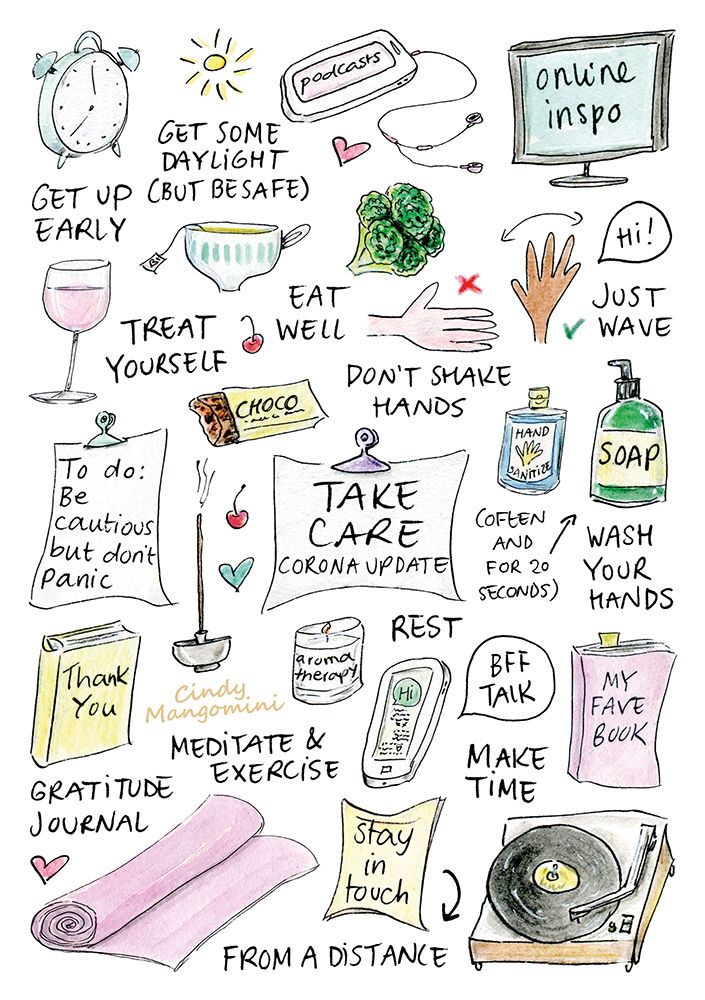 podcasts
online
inspo
GET SOME
DAYLIGHT
(BUT BE SAFE)
GET UP
EARLY
Hi!
JUST
WAVE
EAT
WELL
TREAT
YOURSELF
DON'T SHAKE
HANDS
CHOCO
HAND
SANITIZE
SOAP
To do:
Be
cautious
but don't
panic
TAKE
CARE
CORONA UPDATE
(OFTEN
AND
FOR 20
SECONDS)
WASH
YOUR
HANDS
REST
aroma
therapy
Thank
You
Cindy
Mangomini
Hi
BFF
TALK
MY
FAVE
BOOK
MEDITATE &
EXERCISE
MAKE
TIME
GRATITUDE
JOURNAL
Stay
in
touch
FROM A DISTANCE